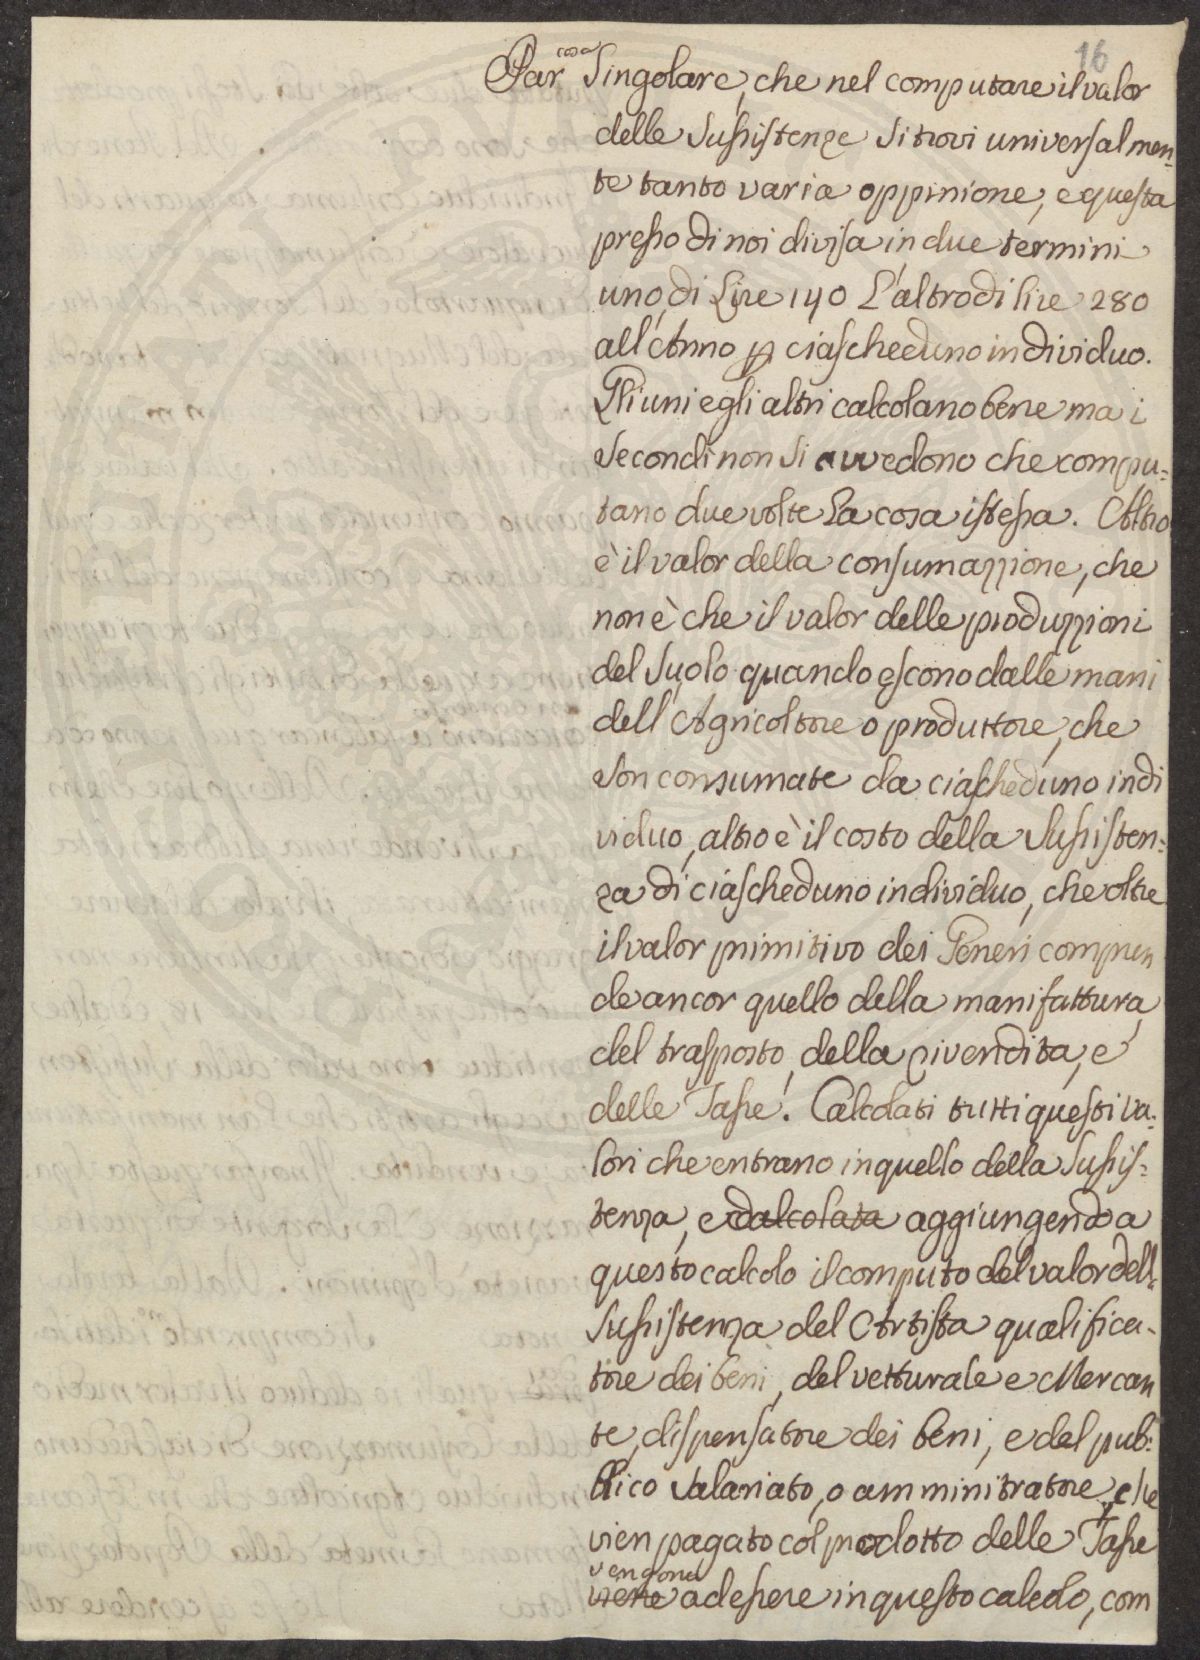 16
Par cosa Singolare, che nel computare il valor
delle Sussistenze si trovi universalmen-
te tanto varia oppinione, e questa
presso di noi divisa in due termini
uno, di Lire 140 L'altro di lire 280
all'Anno p ciascheduno individuo.
Gli uni e gli altri calcolano bene ma i
secondi non si avvedono che compu=
tano due volte la cosa istessa. Altro
è il valor della consumazzione, che
non è che il valor delle produzzioni
del suolo quando escono dalle mani
dell'Agricoltore o produttore, che
son consumate da ciascheduno indi
viduo, altro è il costo della Sussisten=
za di ciascheduno individuo, che oltre
il valor primitivo dei Generi compren
de ancor quello della manifattura,
del trasporto, della rivendita, e
delle Tasse. Calcolati tutti questi va=
lori che entrano in quello della Sussis=
tenza, e calcolata aggiungendo a
questo calcolo il computo del valor dell-
Sussistenza del Artista qualifica-
tore dei beni, del vetturale e Mercan
te, dispensatore dei beni, e del pub=
blico salariato, o amministratore che
vien pagato col prodotto delle Tasse
vengono
viene ad essere in questo calcolo, com